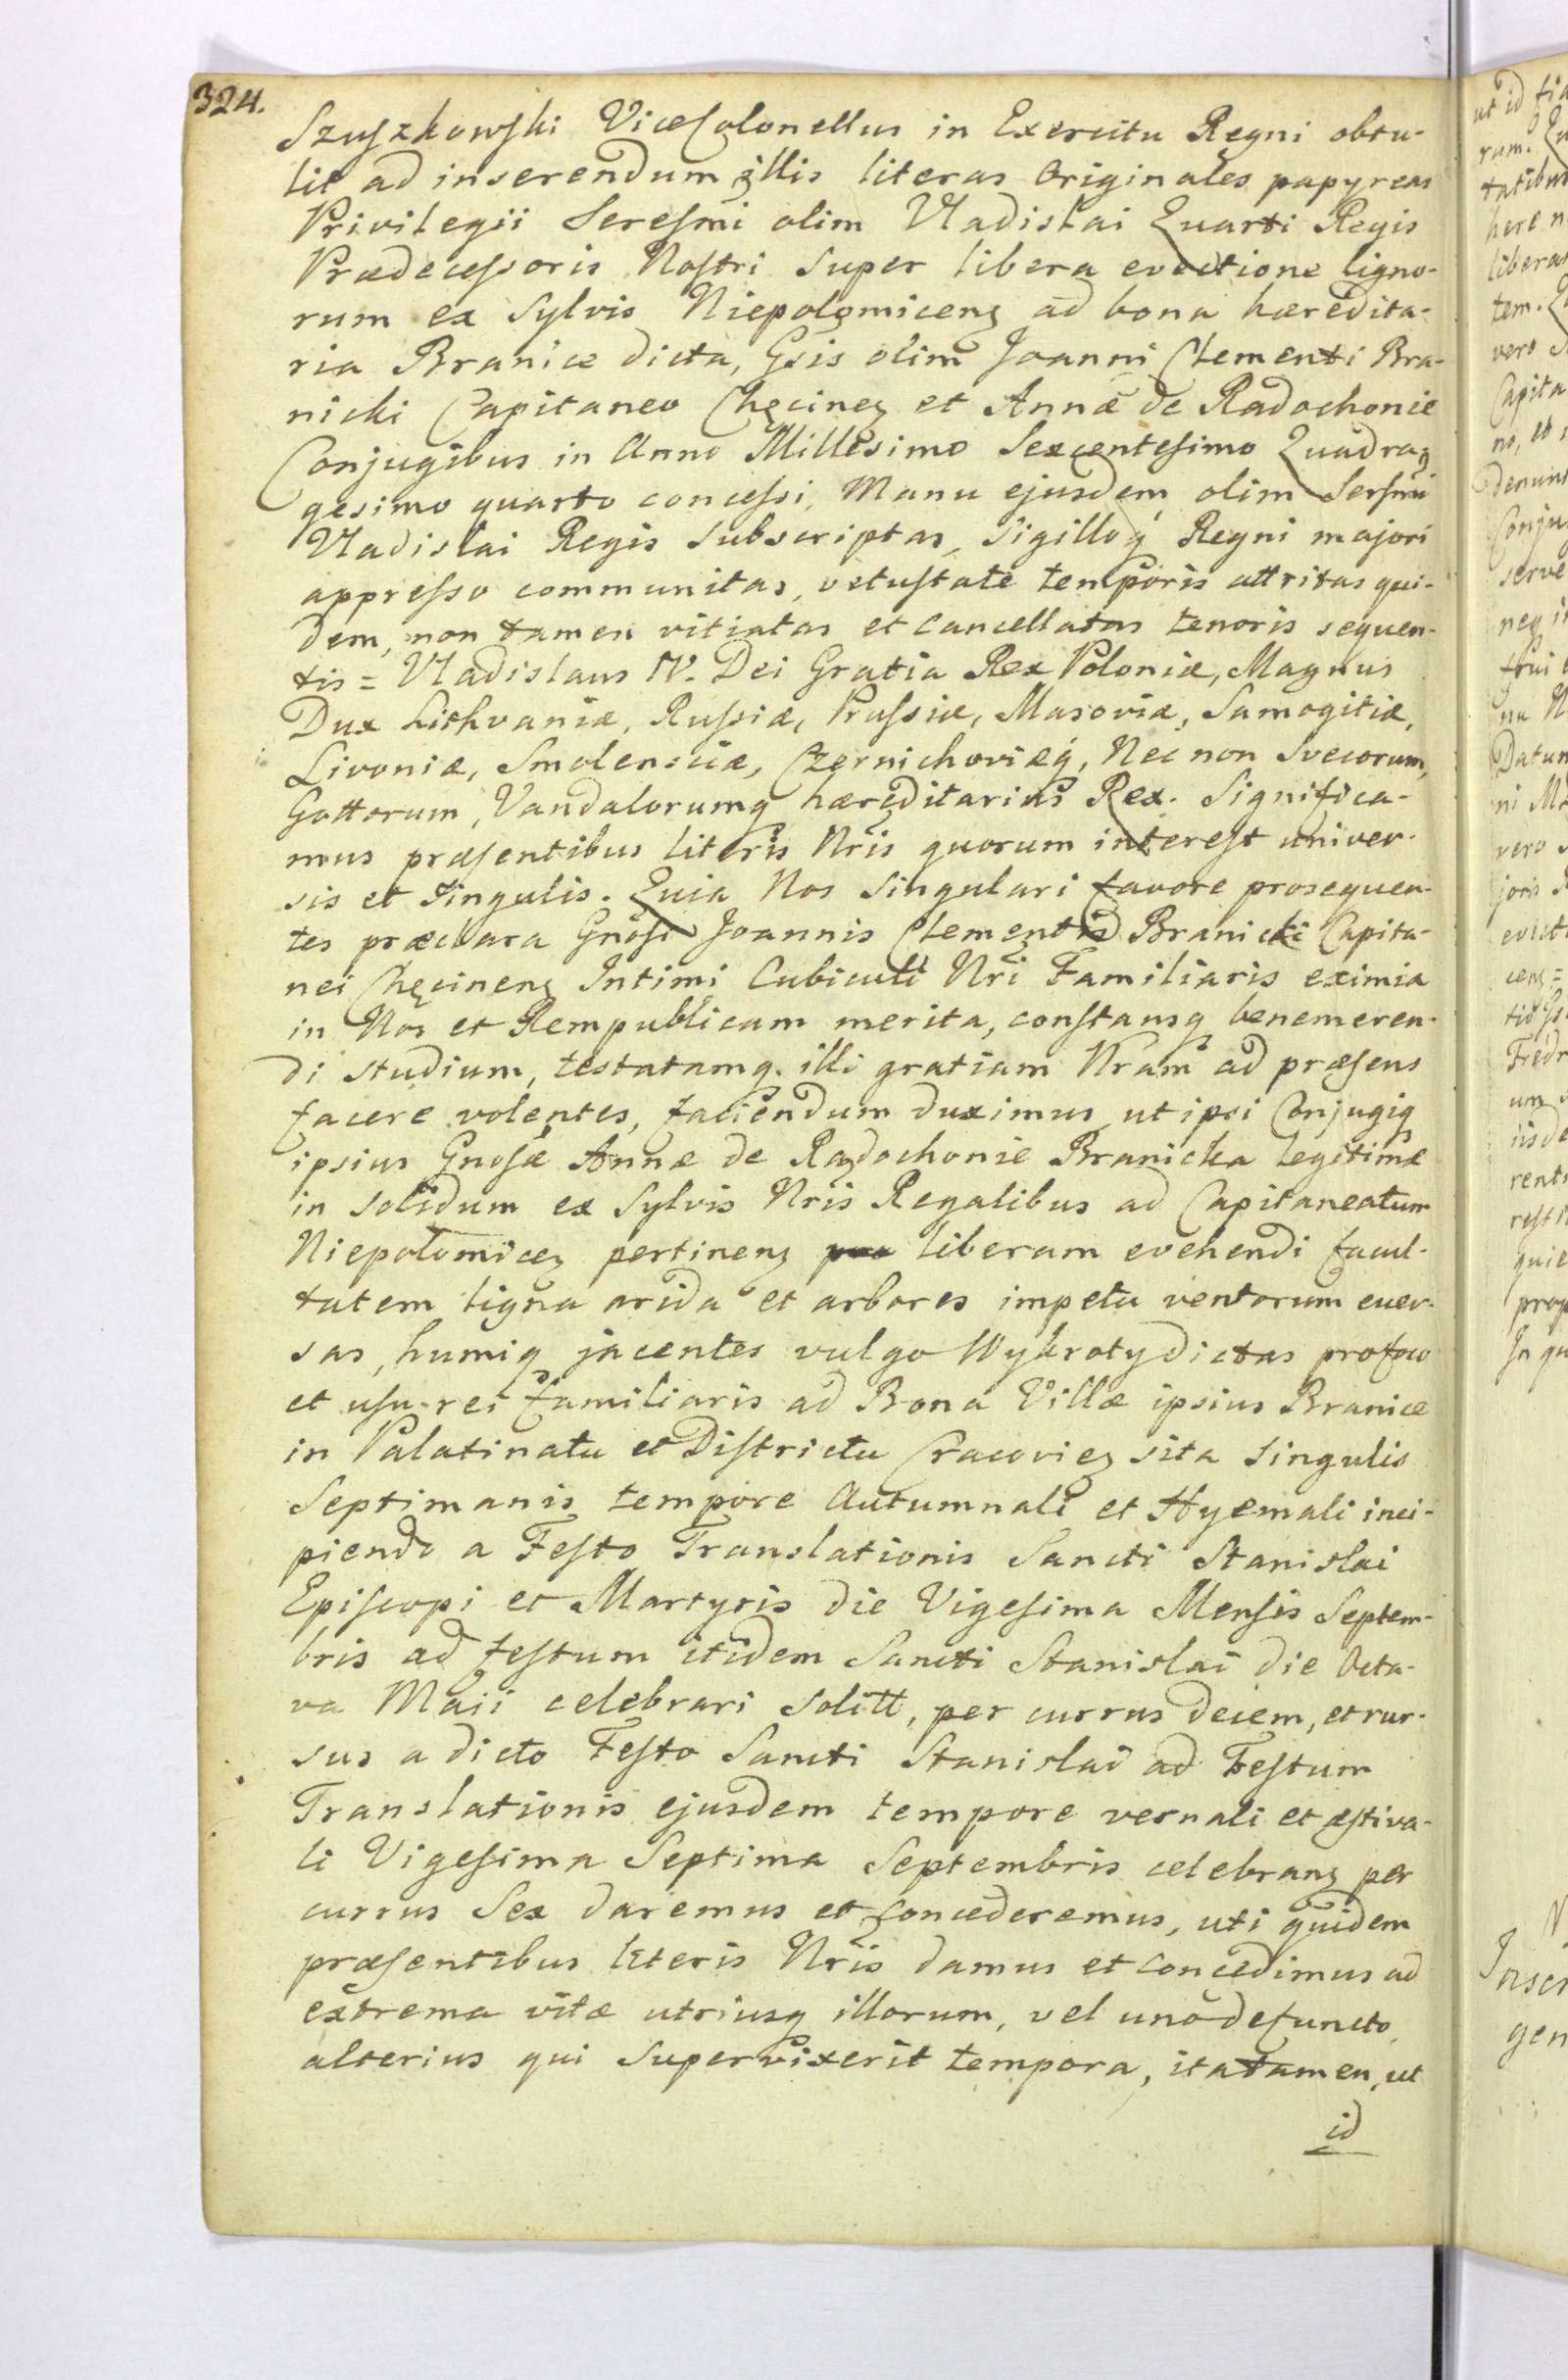 324.
Szuszkowski ViceColonellus in Exercitu Regni obtu-
lit ad inserendum illis literas Originales papyreas
Privilegii Seresmi olim Vladislai Quarti Regis
Prædecessoris Nostri super libera evectione ligno-
rum ex Sylvis Niepolomicenz ad bona hæredita-
ria Branice dicta, Gsis olim Joanni Clementi Bra-
nicki Capitaneo Chęcinenz et Annæ de Radochonie
Conjugibus in Anno Millesimo Sexcentesimo Quadra-
gesimo quarto concessi, Manu ejusdem olim Sersmi
Vladislai Regis subscriptas, sigilloq Regni majori
appresso communitas, vetustate temporis attritas qui-
dem, non tamen vitiatas et cancellatas tenoris sequen-
tis = Vladislaus IV. Dei Gratia Rex Poloniæ, Magnus
Dux Lithvaniæ, Russiæ, Prussiæ, Masoviæ, Samogitiæ,
Livoniæ, Smolensciæ, Czernichoviæq, Nec non Svecorum,
Gottorum, Vandalorumq hæreditarius Rex. Significa-
mus præsentibus literis Nris quorum interest univer-
sis et singulis. Quia Nos singulari favore prosequen-
tes præclara Gnosi Joannis Clementis Branicki Capita-
nei Chęcinenz Intimi Cubiculi Nri Familiaris eximia
in Nos et Rempublicam merita, constansq benemeren-
di studium, testatamq. illi gratiam Nram ad præsens
facere volentes, faciendum duximus, ut ipsi Conjugiq
ipsius Gnosæ Annæ de Radochonie Branicka legitimæ
in solidum ex Sylvis Nris Regalibus ad Capitaneatum
Niepolomicez pertinenz liberam evehendi facul-
tatem ligna arida et arbores impetu ventorum ever-
sas, humiq jacentes vulgo Wykroty dictas pro foco
et usu rei familiaris ad Bona Villæ ipsius Branice
in Palatinatu et Districtu Cracoviez sita singulis
Septimanis tempore Autumnali et Hyemali inci-
piendo a Festo Translationis Sancti Stanislai
Episcopi et Martyris die Vigesima Mensis Septem-
bris ad festum itidem Sancti Stanislai die Octa-
va Maii celebrari solitt, per currus decem, et rur-
sus a dicto Festo Sancti Stanislai ad Festum
Translationis ejusdem tempore vernali et æstiva-
li Vigesima Septima Septembris celebranz per
currus Sex daremus et concederemus, uti quidem
præsentibus literis Nris damus et concedimus ad
extrema vitæ utriusq illorum, vel uno defuncto,
alterius qui supervixerit tempora, ita tamen, ut
id